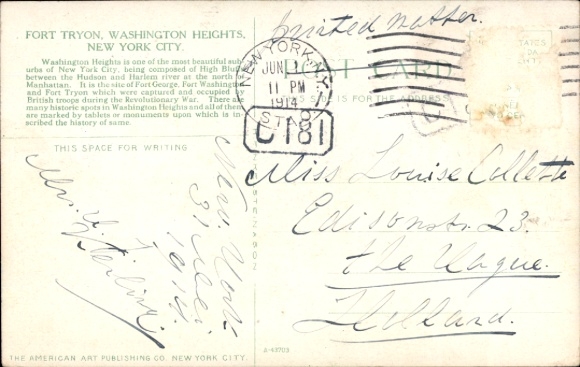 printed matter.
FORT TRYON, WASHINGTON HEIGHTS,
NEW YORK CITY.
Washington Heights is one of the most beautiful sub-
urbs of New York City, being composed of High Bluffs
between the Hudson and Harlem river at the north of
Manhattan. It is the site of Fort George, Fort Washington
and Fort Tryon which were captured and occupied by
British troops during the Revolutionary War. There are
many historic spots in Washington Heights and all of them
are marked by tablets or monuments upon which is in-
scribed the history of same.
NEW YORK, N.Y.
JUN 1
11 PM
1914
STA.
C 181
POST CARD
THIS SPACE IS FOR THE ADDRESS
THIS SPACE FOR WRITING
New York
31
1914
Mrs.
Miss Louise Collette
Edisonstr. 23.
the Hague.
Holland.
THE AMERICAN ART PUBLISHING CO. NEW YORK CITY.
A-43703